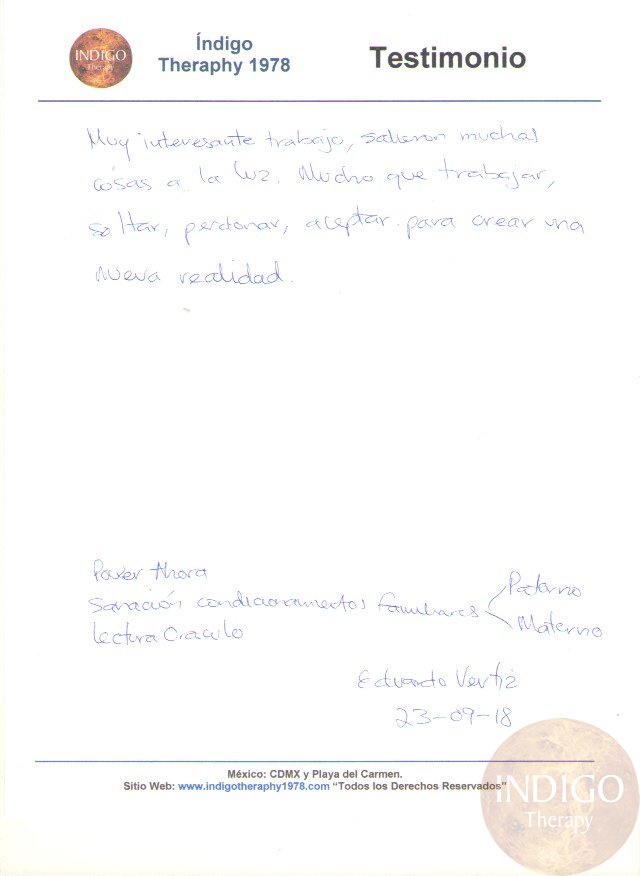 INDIGO
Therapy
Índigo
Theraphy 1978
Testimonio
Muy interesante trabajo, salieron muchas
cosas a la luz. Mucho que trabajar,
soltar, perdonar, aceptar para crear una
nueva realidad.
Power Ahora
Sanación condicionamientos familiares
Paterno
Materno
Lectura Oraculo
Eduardo Vertiz
23-09-18
México: CDMX y Playa del Carmen.
Sitio Web: www.indigotheraphy1978.com “Todos los Derechos Reservados”
INDIGO
Therapy